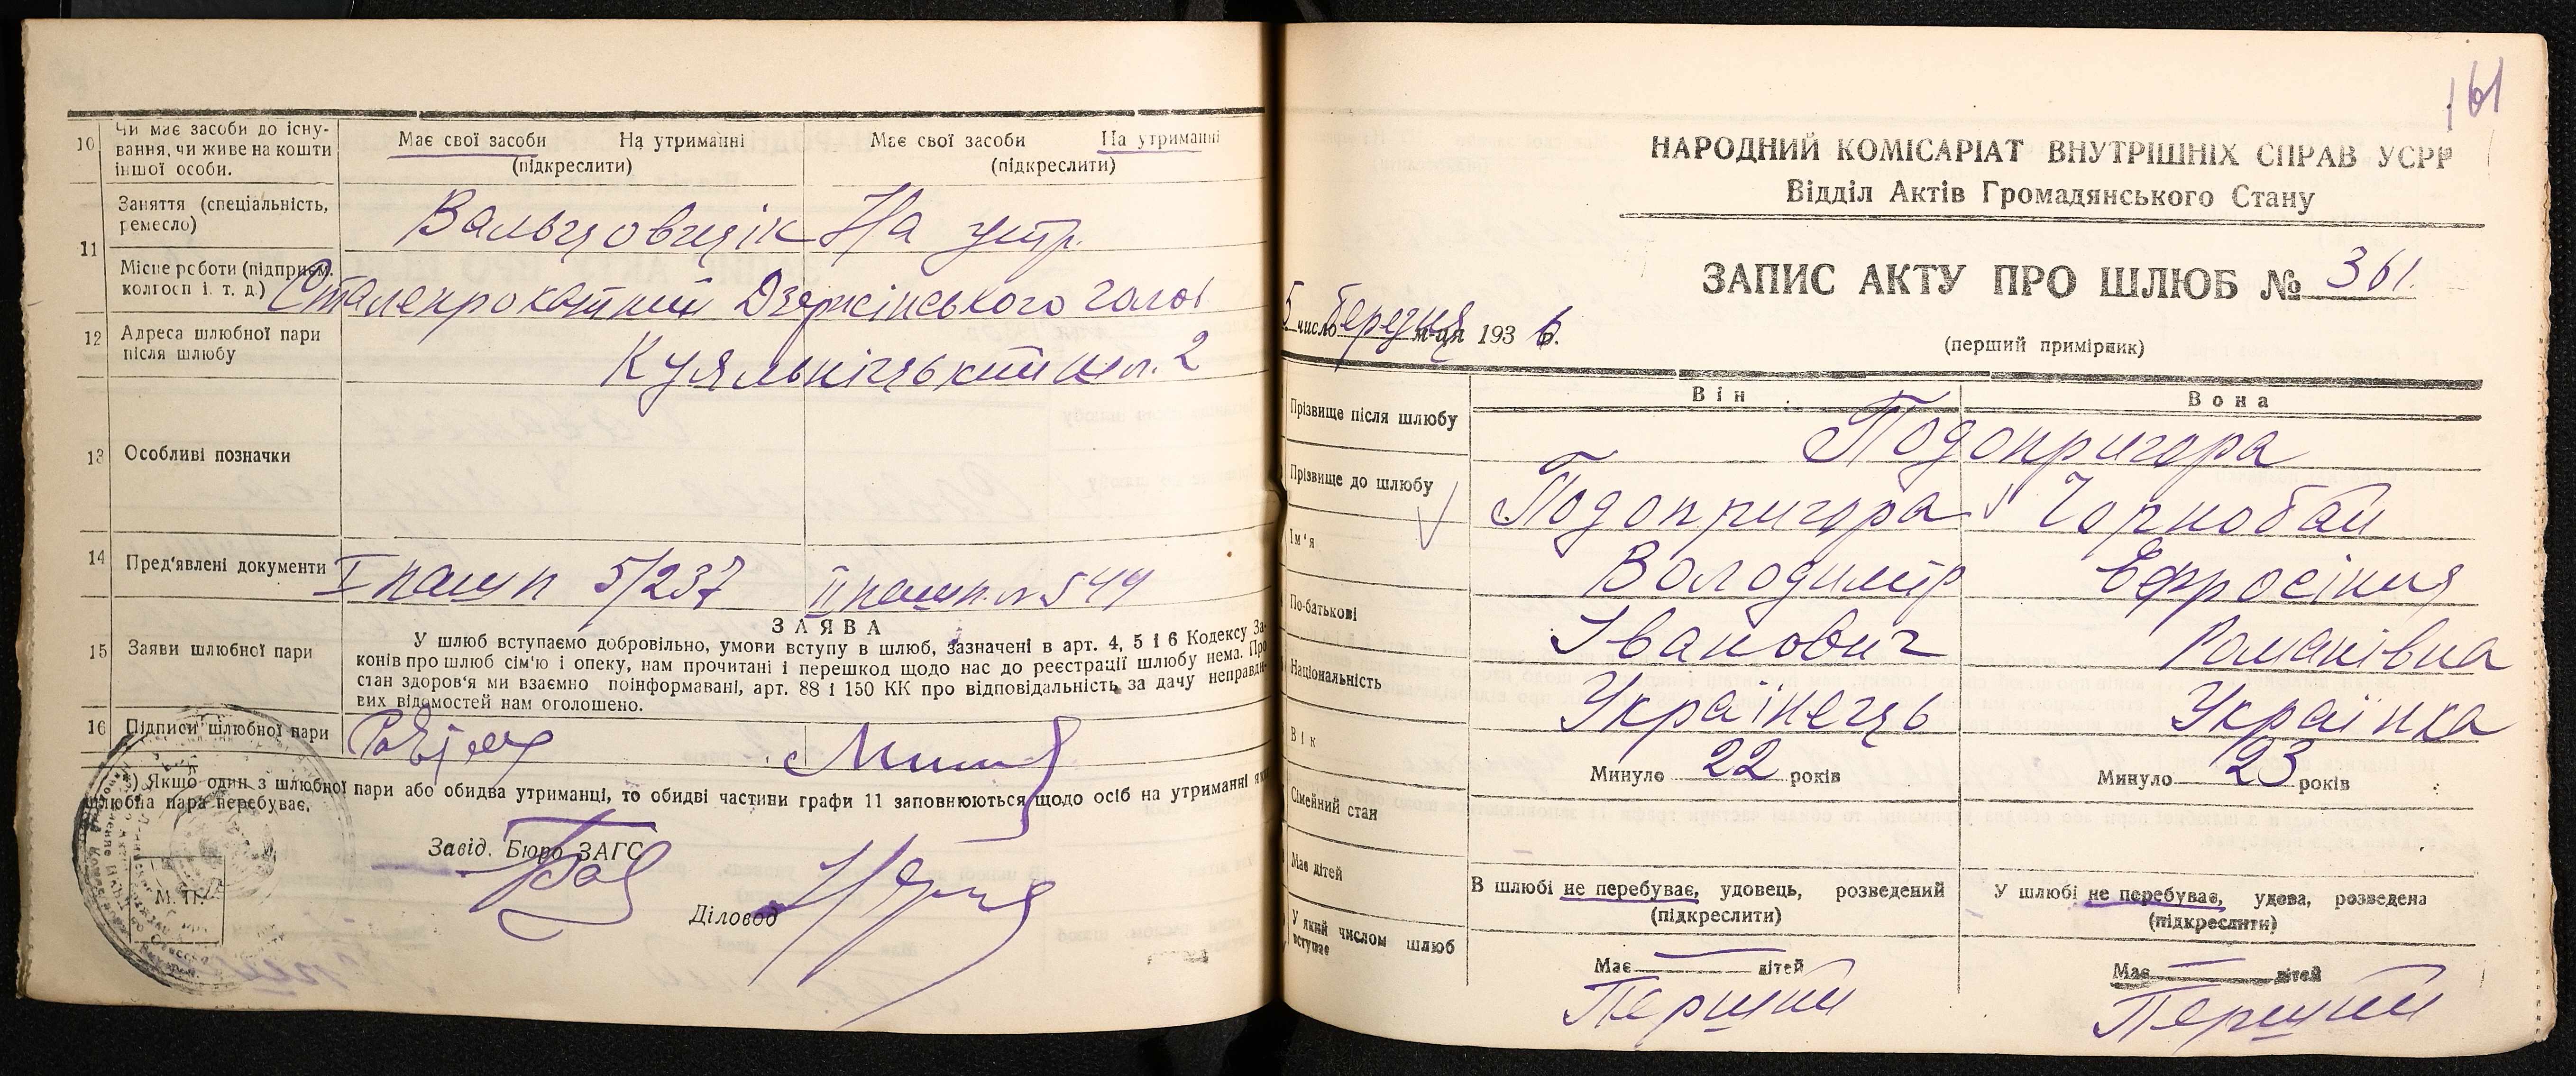 10
Чи має засоби до існу-
вання, чи живе на кошти
іншої особи.
Має свої засоби На утриманні
(підкреслити)
Має свої засоби На утриманні
(підкреслити)
11
Заняття (спеціальність,
ремесло)
Вальцовщік На утр.
Місце роботи (підприєм.
колгосп і. т. д.)
Сталепрокатний Дзержінського
12
Адреса шлюбної пари
після шлюбу
Куяльніцький 2
13
Особливі позначки
14
Пред'явлені документи
I пашп 5/237 II пашп. № 544
ЗАЯВА
15
Заяви шлюбної пари
У шлюб вступаємо добровільно, умови вступу в шлюб, зазначені в арт. 4, 5 і 6 Кодексу За-
конів про шлюб сім'ю і опеку, нам прочитані і перешкод щодо нас до реєстрації шлюбу нема. Про
стан здоров'я ми взаємно поінформавані, арт. 88 і 150 КК про відповідальність за дачу неправди-
вих відомостей нам оголошено.
16
Підписи шлюбної пари
*) Якщо один з шлюбної пари або обидва утриманці, то обидві частини графи 11 заповнюються щодо осіб на утриманні яки
шлюбна пара перебуває.
Завід. Бюро ЗАГС
М. П.
Діловод
161
НАРОДНИЙ КОМІСАРІАТ ВНУТРІШНІХ СПРАВ УСРР
Відділ Актів Громадянського Стану
ЗАПИС АКТУ ПРО ШЛЮБ № 361.
5 число березня м-ця 1936.
(перший примірник)
Він Вона
Прізвище після шлюбу
Подопригора
Прізвище до шлюбу
Подопригора Чорнобай
Ім'я
Володимір Єфросінія
По-батькові
Іванович Романівна
Національність
Українець Українка
Вік
Минуло 22 років Минуло 23 років
Сімейний стан
В шлюбі не перебуває, удовець, розведений
(підкреслити)
У шлюбі не перебуває, удова, розведена
(підкреслити)
Має дітей
Має — дітей Має — дітей
У який числом шлюб
вступає
Перший Перший